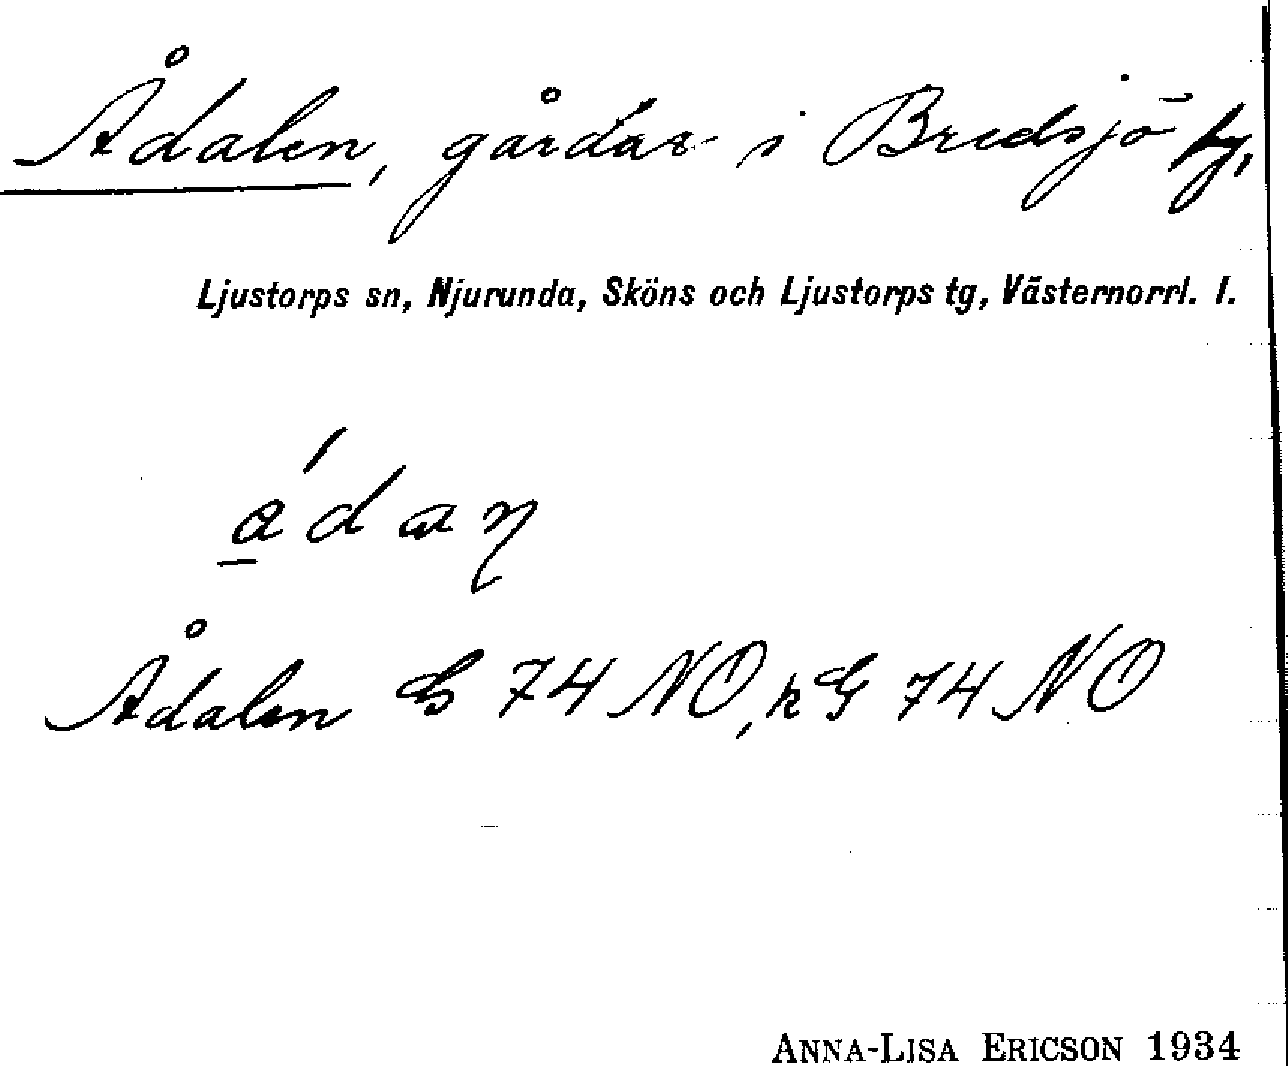 Ådalen, gårdar i Bredsjö by,
Ljustorps sn, Njurunda, Sköns och Ljustorps tg, Västernorrl. l.
Ådalen G 74 NO, k G 74 NO
ANNA-LISA ERICSON 1934